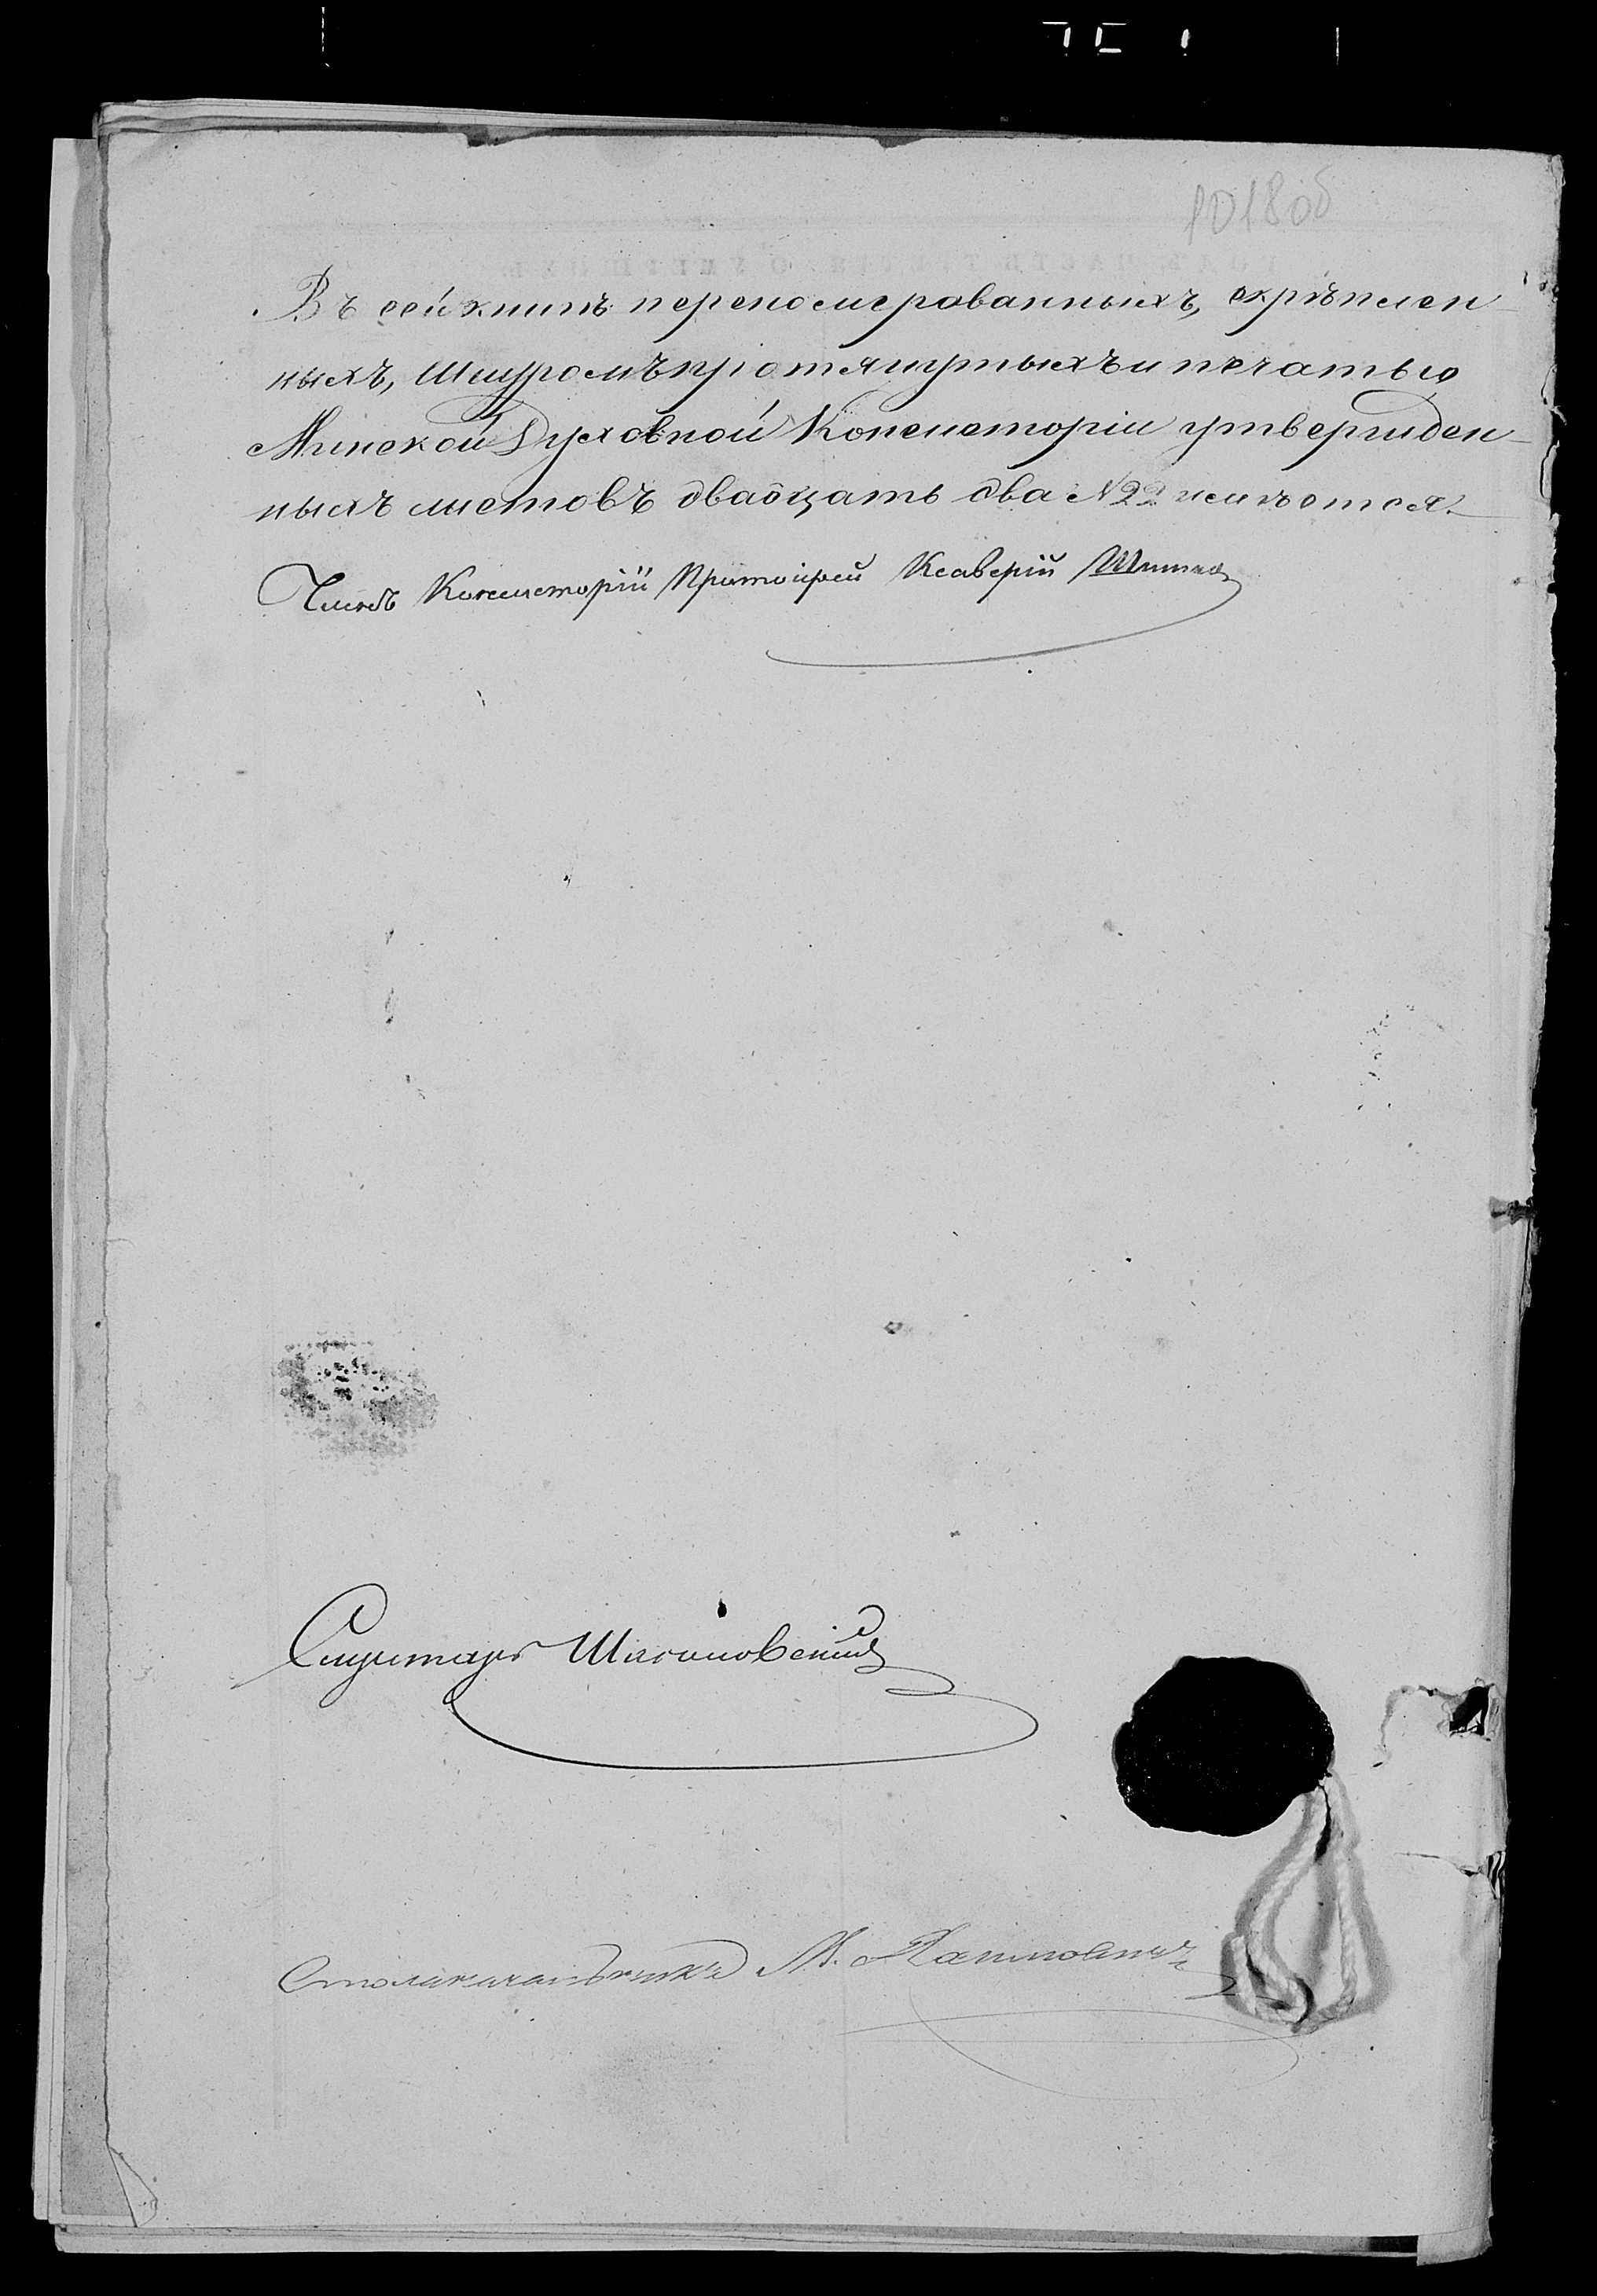 1018 об
Въ сей книгѣ переномерованныхъ, скрѣплен-
ныхъ, шнуромъ протянутыхъ и печатью
Минской Духовной Консисторіи утвержден-
ныхъ листовъ двадцать два №22 имѣется.
Членъ Консисторіи Протоіерей Ксаверій
Секретарь
Столоначальникъ М.